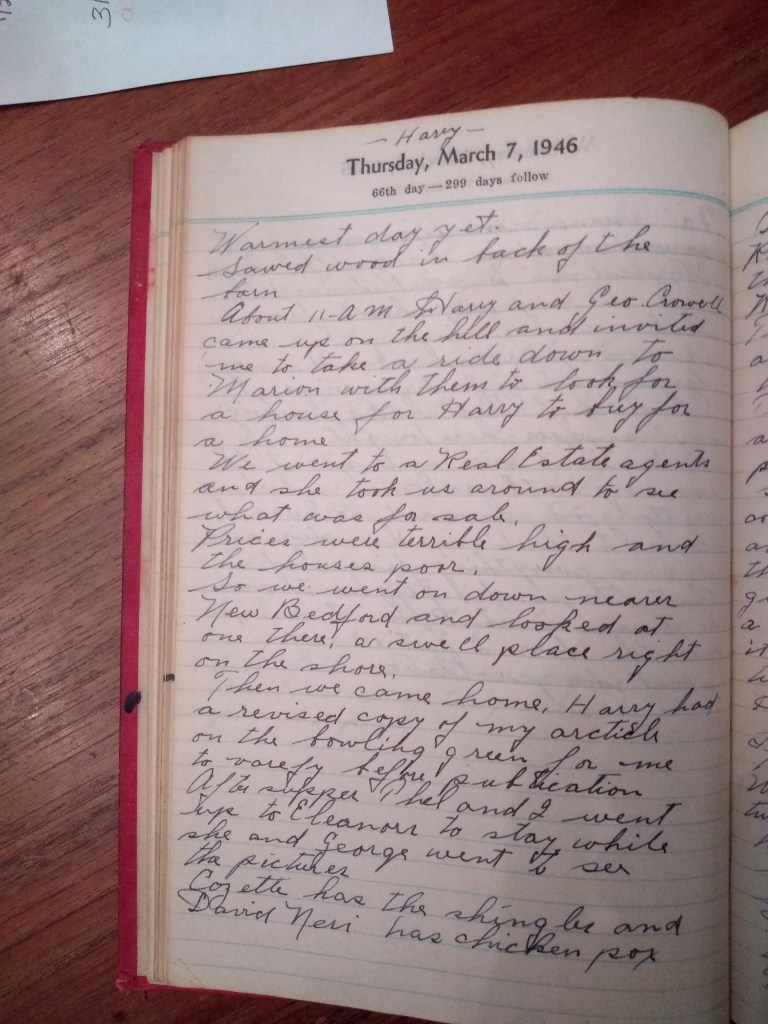 31
— Harry —
Thursday, March 7, 1946
66th day — 299 days follow
Warmest day yet.
Sawed wood in back of the
barn
About 11-A M Harry and Geo. Crowell
came up on the hill and invited
me to take a ride down to
Marion with them to look for
a house for Harry to buy for
a home
We went to a Real Estate agents
and she took us around to see
what was for sale.
Prices were terrible high and
the houses poor.
So we went on down nearer
New Bedford and looked at
one there, a swell place right
on the shore.
Then we came home, Harry had
a revised copy of my article
on the bowling green for me
to varefy before publication
After supper Phel and I went
up to Eleanors to stay while
she and George went to see
the pictures
Cozette has the shingles and
David Neri has chicken pox